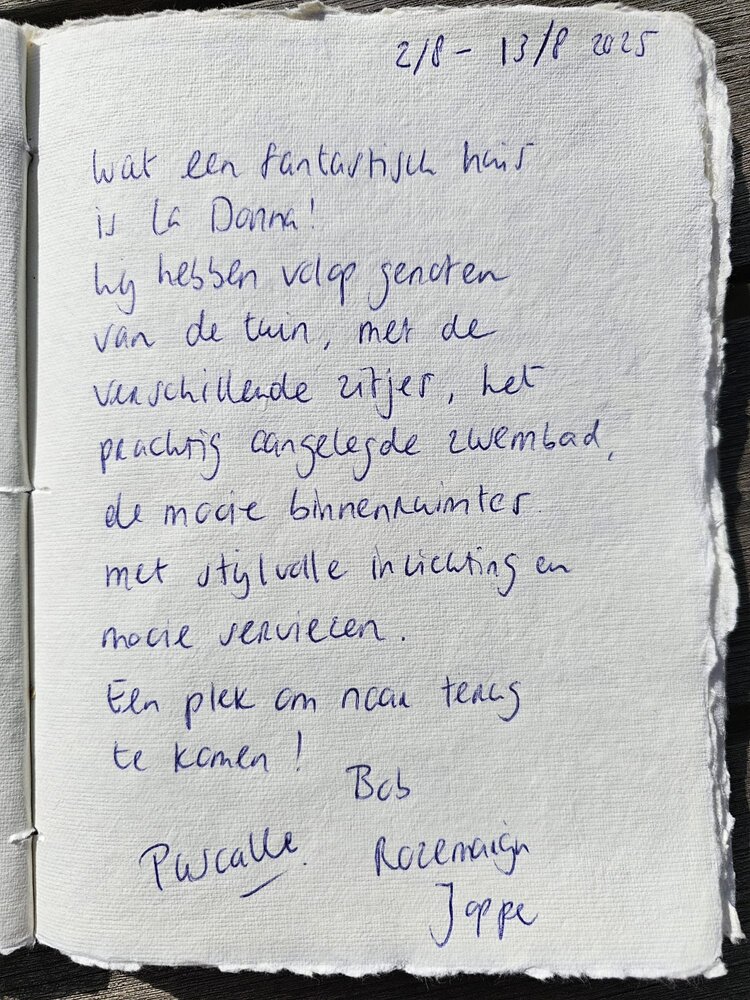 2/8 - 13/8 2025
Wat een fantastisch huis
is La Donna!
Wij hebben volop genoten
van de tuin, met de
verschillende zitjes, het
prachtig aangelegde zwembad,
de mooie binnenruimtes
met stijlvolle inrichting en
mooie serviezen.
Een plek om naar terug
te komen!
Bob
Pascalle
Rozemarijn
Joppe